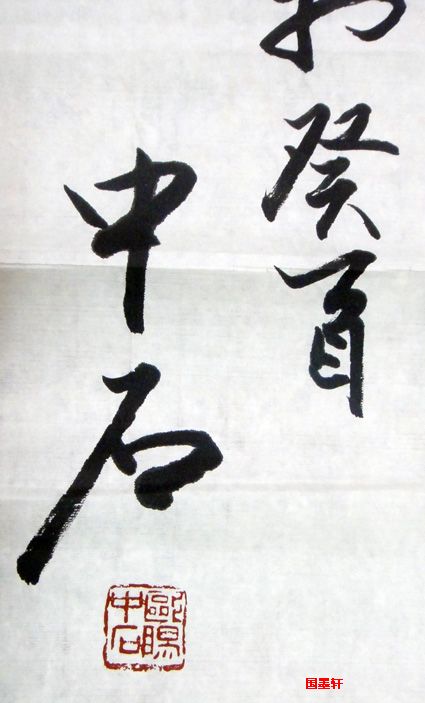 癸酉
中石
歐陽
中石
国墨轩